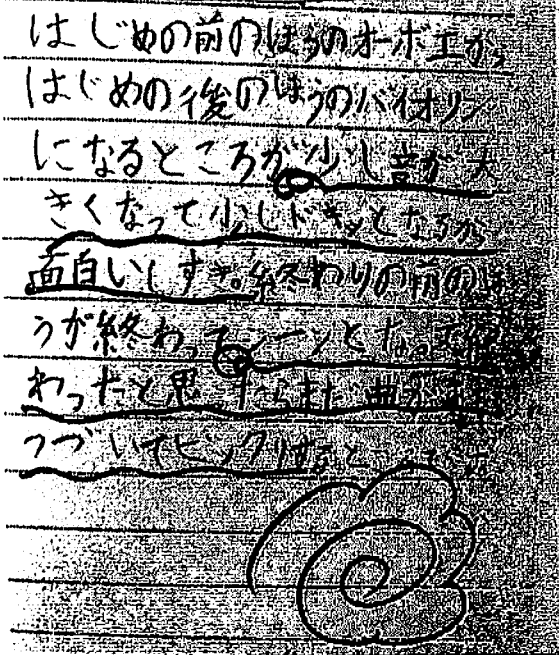 はじめの前のほうのオーボエから
はじめの後のほうのバイオリン
になるところが少し音が大
きくなって少しドキッとなるから
面白いしすき。終わりの前のほ
うが終わってシーンとなって終
わったと思ったらまだ曲が
つづいてビックリする